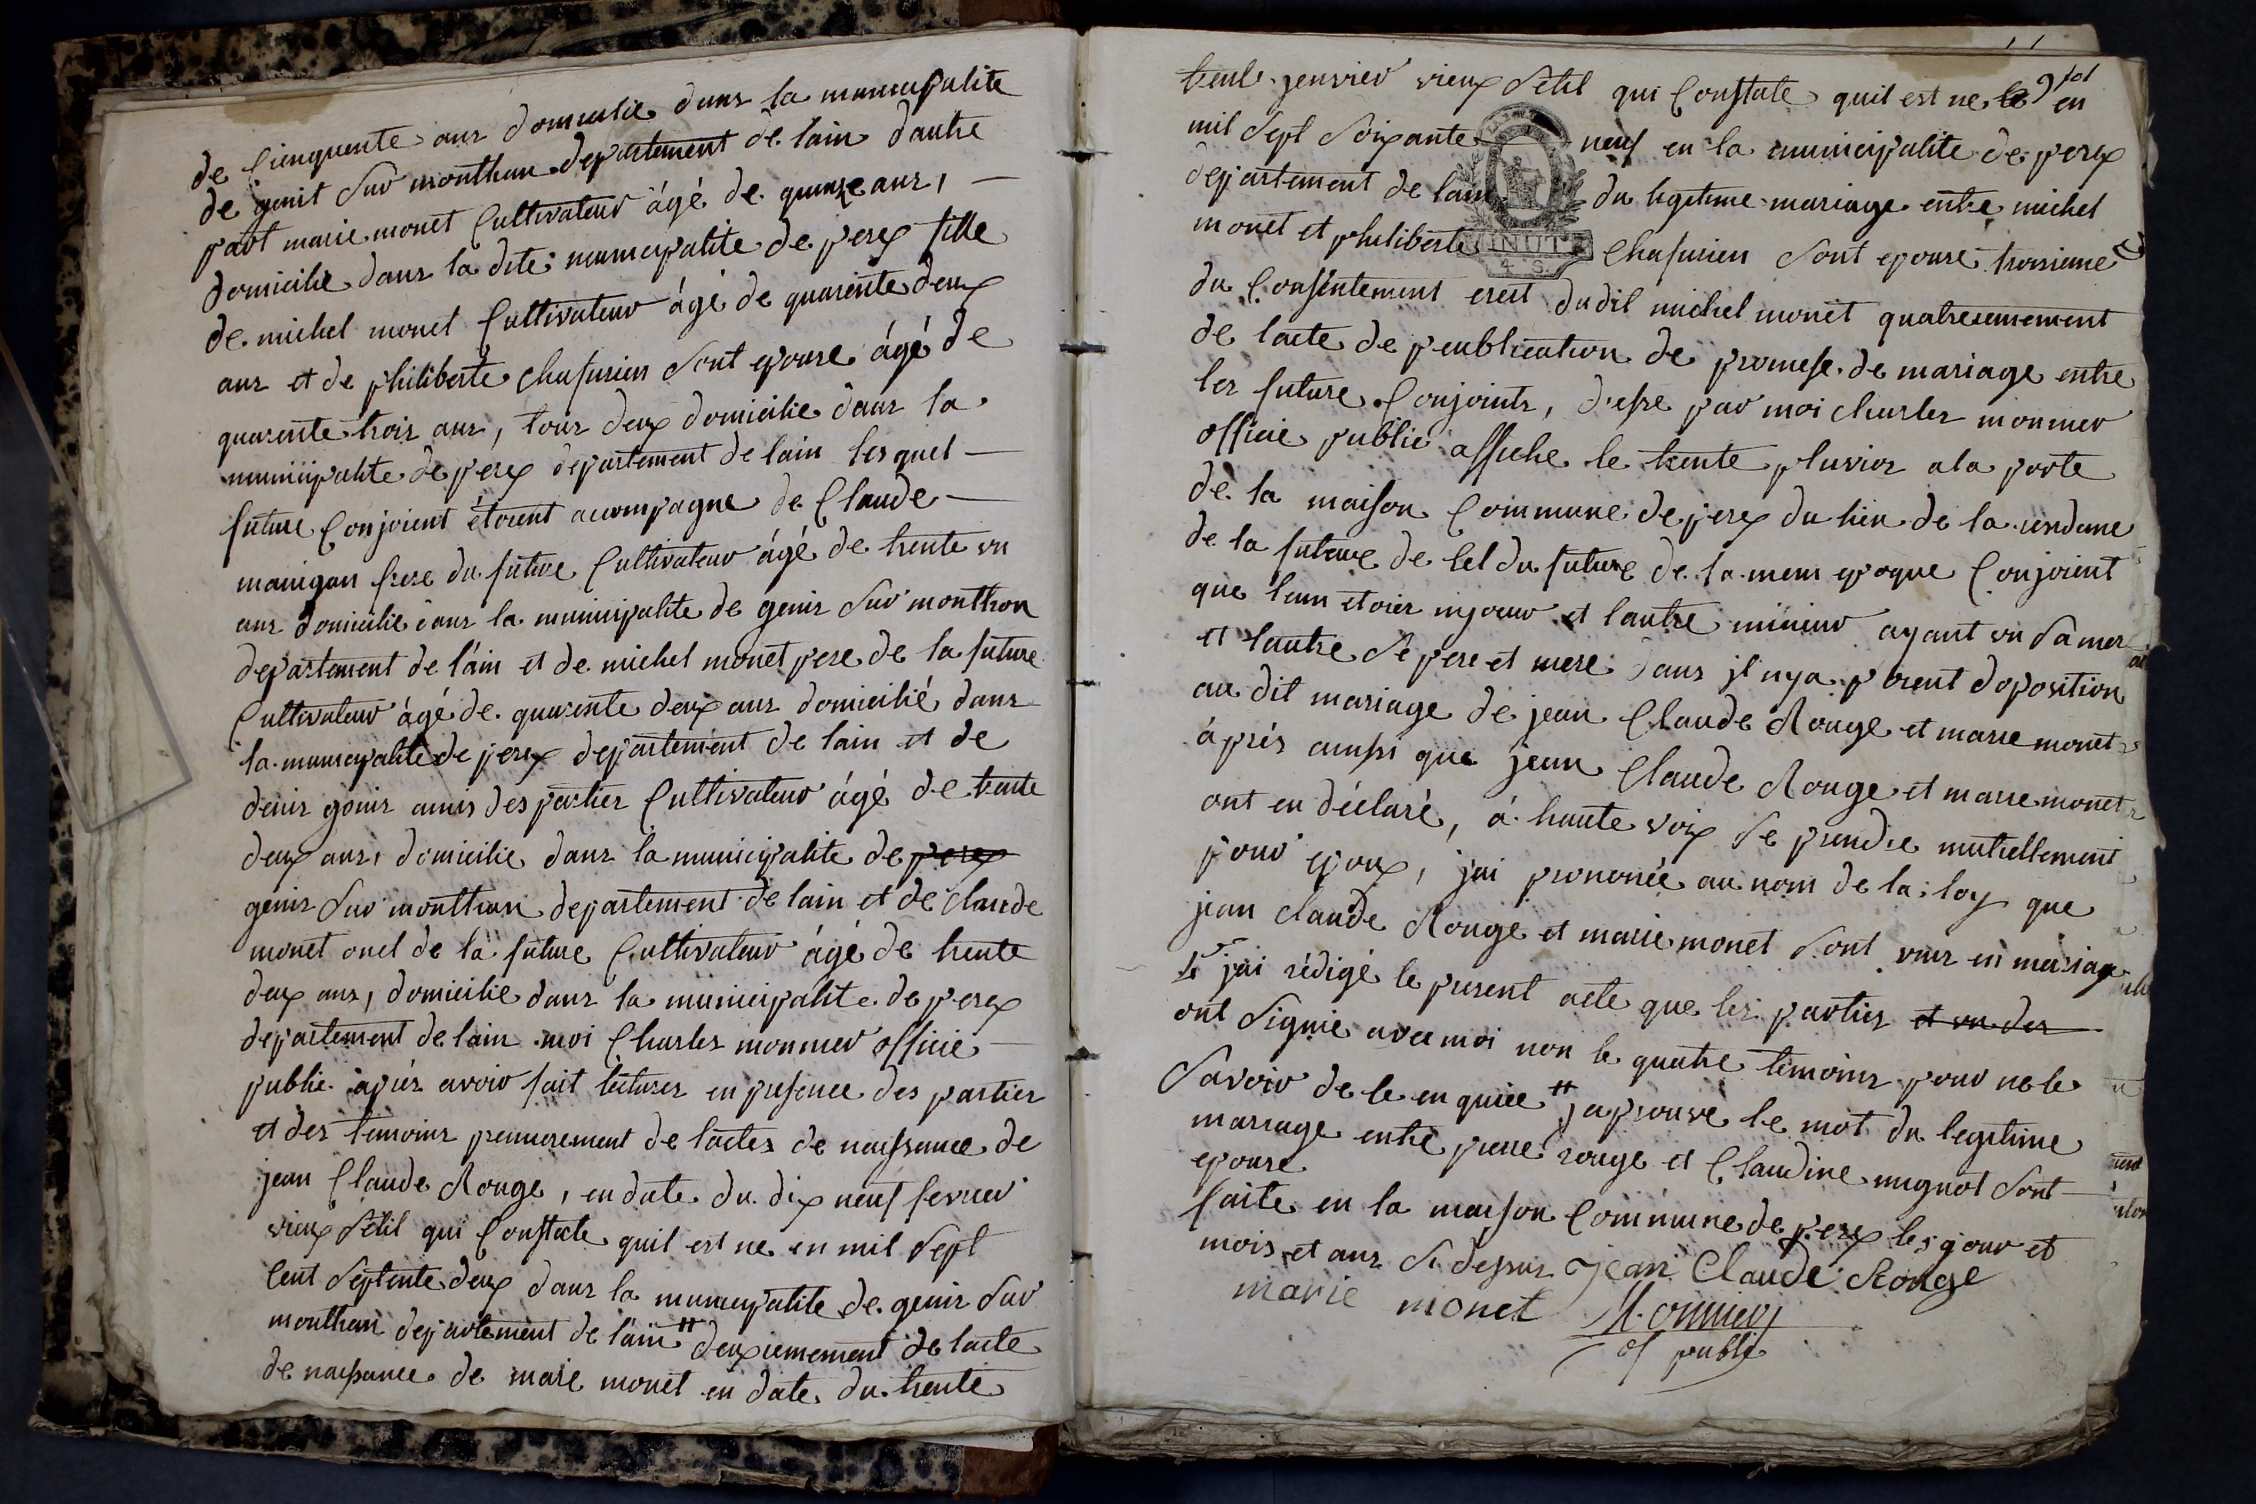 de cienquente ans domicilie dans la municipalite
de genit sur monthan departement de lain dautre
part marie monet Cultivateur âgé de quinze ans, —
domicilie dans la dite municipalite de perex fille
de michel monet Cultivateur âgé de quarente deux
ans et de philiberte chafurien sont epouse âgé de
quarente trois ans, tous deux domicilie dans la
municipalite de pérex departement de lain lesquel —
future Conjoient étoient acompagne de Claude —
mauigan frere du future Cultivateur âgé de trente un
ans domicilie dans la municipalite de genis sur monthon
departement de l'ain et de michel monet pere de la future
Cultivateur âgé de quarente deux ans domicilié dans
la municipalite de perex departement de lain et de
denis genis amis des parties Cultivateur âgé de trente
deux ans, domicilie dans la municipalite de perex
genis sur monthan departement de lain et de claude
monet oncl de la future Cultivateur âgé de trente
deux ans, domicilie dans la municipalite de perex
departement de lain moi Charles monnier officie —
public après avoir fait lectures en presence des parties
et des temoins premierement de lactes de naissance de
jean Claude Rouge, en date du dix neuf fevrier
vieux stil qui Constate quil est ne en mil sept
cent septente deux dans la municipalite de genis sur
monthan departement de lain # deuxiemement de lacte
de naissance de marie monet en date du trente
trente jenvier vieux stil qui Constate quil est ne le en
mil sept soixante neuf en la municipalite de perex
departement de lain du legitime mariage entre michel
monet et philiberte Chafurien sont epouse troisieme
MINUTE
4. S.
du Consentement du dit michel monet quatriemement
de lacte de peublication de promesse de mariage entre
les future Conjoints, dresse par moi charles monnier
officie public affiche le trente pluvios a la porte
de la maison Commune de perex du lieu de la
de la future de cel du future de la mem epoque Conjoient
que lun etoier et lautre mineur ayant un sa mer
et lautre se pere et mere dans il nya poient doposition
au dit mariage de jean Claude Rouge et marie monet
après ainssi que jean Claude Rouge et marie monet
ont eu déclaré, á haute voix se prendre mutuellement
pour epoux, jai prononcé au nom de la loy que
jean claude Rouge et marie monet sont unis en mariage
jai rédigé le present acte que les parties et un des
ont signié avec moi non le quatre temoins pour ne le
savoir de le enquiée # japrouve le mot du legitime
mariage entre pierre rouge et Claudine mignot sont
epouse
faite en la maison Commune de perex les jour et
mois et ans si dessus jean Claude Rouge
marie monet Monnier
of public